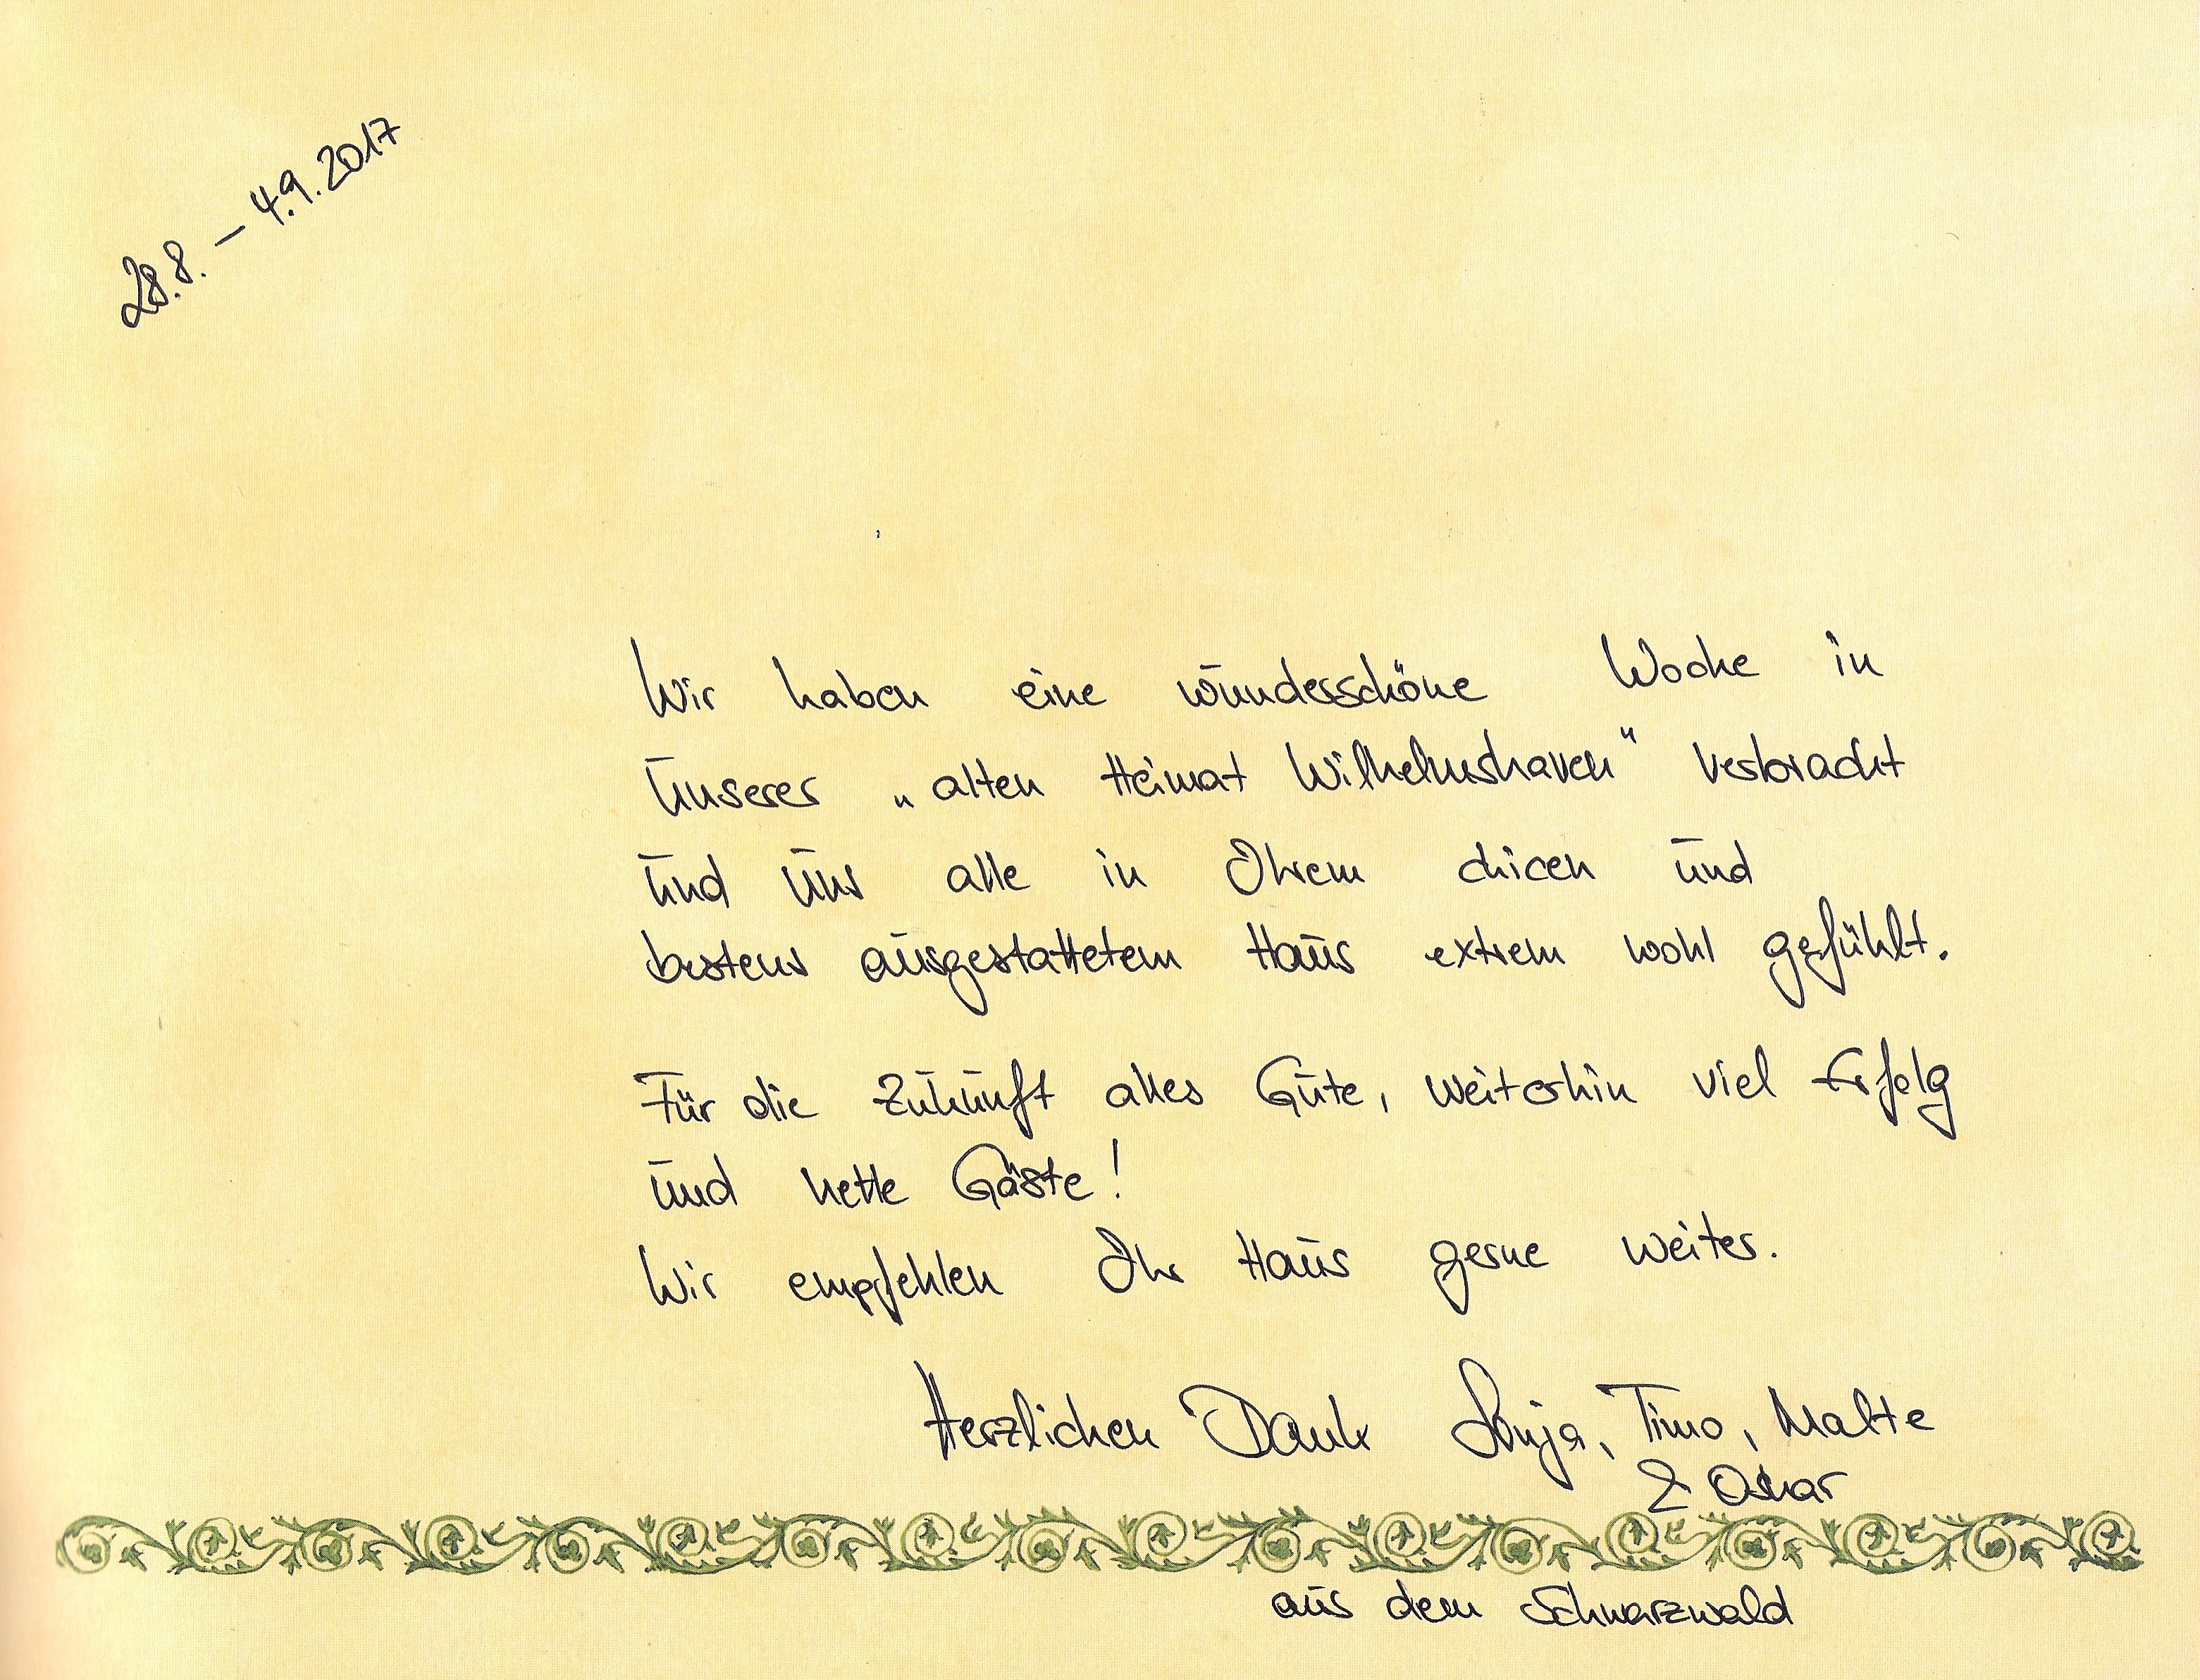 28.8. – 4.9.2017
Wir haben eine wunderschöne Woche in
unserer „alten Heimat Wilhelmshaven" verbracht
und uns alle in Ihrem chicen und
bestens ausgestattetem Haus extrem wohl gefühlt.
Für die Zukunft alles Gute, weiterhin viel Erfolg
und nette Gäste!
Wir empfehlen Ihr Haus gerne weiter.
Herzlichen Dank Sonja, Timo, Malte
& Oskar
aus dem Schwarzwald